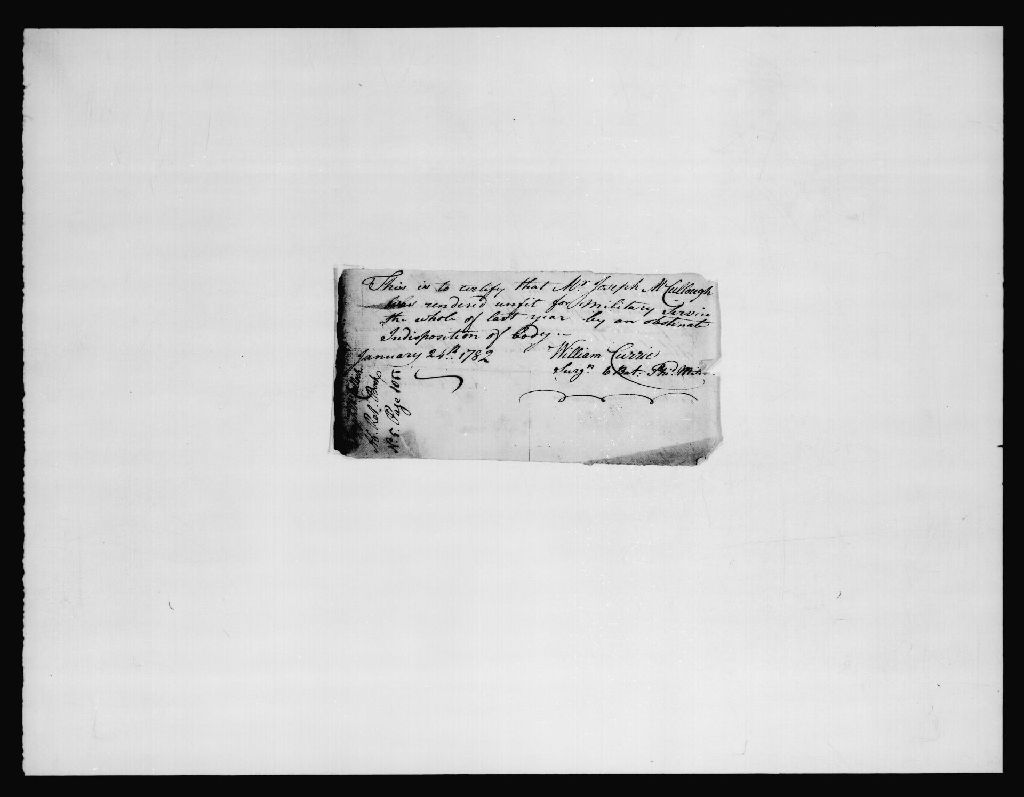 This is to certify that Mr Joseph McCullough
Was rendered unfit for Military Servic
the whole of last year by an obstinat
Indisposition of body.—
January 24th. 1782
William Currie
Surgn. 6 Bat. Pha. Ma
N. Ref. Book
No. 5. Page 105